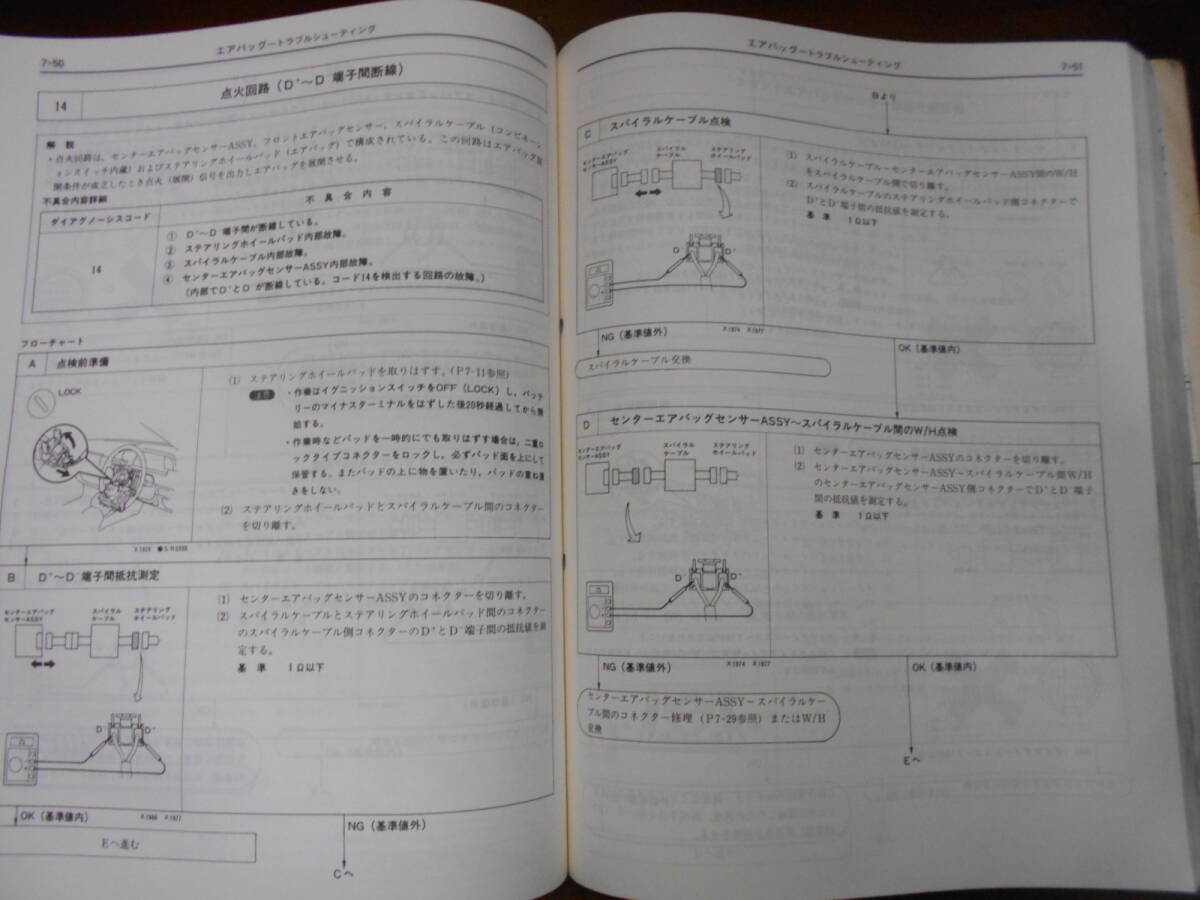 7-50
エアバッグートラブルシューティング
14
点火回路（D⁺～D⁻端子間断線）
解 説
・点火回路は、センターエアバッグセンサーASSY、フロントエアバッグセンサー、スパイラルケーブル（コンビネーシ
ョンスイッチ内蔵）およびステアリングホイールパッド（エアバッグ）で構成されている。この回路はエアバッグ展
開条件が成立したとき点火（展開）信号を出力しエアバッグを展開させる。
不具合内容詳細
ダイアグノーシスコード
不 具 合 内 容
14
① D⁺～D⁻端子間が断線している。
② ステアリングホイールパッド内部故障。
③ スパイラルケーブル内部故障。
④ センターエアバッグセンサーASSY内部故障。
（内部でD⁺とD⁻が断線している。コード14を検出する回路の故障。）
フローチャート
A 点検前準備
LOCK
(1) ステアリングホイールパッドを取りはずす。（P7-11参照）
注意 ・作業はイグニッションスイッチをOFF（LOCK）し，バッテ
リーのマイナスターミナルをはずした後20秒経過してから開
始する。
・作業時などパッドを一時的にでも取りはずす場合は，二重ロ
ックタイプコネクターをロックし，必ずパッド面を上にして
保管する。またパッドの上に物を置いたり，パッドの重ね置
きをしない。
(2) ステアリングホイールパッドとスパイラルケーブル間のコネクター
を切り離す。
B D⁺～D⁻端子間抵抗測定
センターエアバッグ
センサーASSY
スパイラル
ケーブル
ステアリング
ホイールパッド
D⁻
D⁺
(1) センターエアバッグセンサーASSYのコネクターを切り離す。
(2) スパイラルケーブルとステアリングホイールパッド間のコネクター
のスパイラルケーブル側コネクターのD⁺とD⁻端子間の抵抗値を測
定する。
基 準 1Ω以下
OK（基準値内）
Eへ進む
NG（基準値外）
Cへ
エアバッグートラブルシューティング
7-51
Bより
C スパイラルケーブル点検
センターエアバッグ
センサーASSY
スパイラル
ケーブル
ステアリング
ホイールパッド
D⁻
D⁺
(1) スパイラルケーブル～センターエアバッグセンサーASSY間のW/H
をスパイラルケーブル間で切り離す。
(2) スパイラルケーブルのステアリングホイールパッド側コネクターで
D⁺とD⁻端子間の抵抗値を測定する。
基 準 1Ω以下
NG（基準値外）
X1974 X1977
スパイラルケーブル交換
OK（基準値内）
D センターエアバッグセンサーASSY～スパイラルケーブル間のW/H点検
センターエアバッグ
センサーASSY
スパイラル
ケーブル
ステアリング
ホイールパッド
D⁻
D⁺
(1) センターエアバッグセンサーASSYのコネクターを切り離す。
(2) センターエアバッグセンサーASSY～スパイラルケーブル間W/H
のセンターエアバッグセンサーASSY側コネクターでD⁺とD⁻端子
間の抵抗値を測定する。
基 準 1Ω以下
NG（基準値外）
X1974 X1977
OK（基準値内）
センターエアバッグセンサーASSY～スパイラルケー
ブル間のコネクター修理（P7-29参照）またはW/H
交換
Eへ